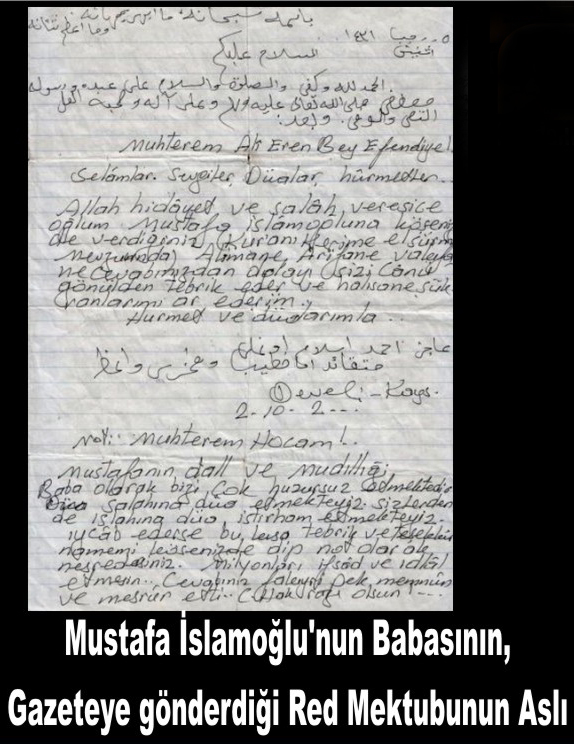 باسمك سبحانه
السلام عليكم
الحمد لله وكفى والصلوة والسلام على عبده ورسوله
Muhterem Ali Eren Bey Efendiye!
Selâmlar. Saygılar, Düalar, hürmetler...
Allah hidâyet ve salâh veresice
oğlum Mustafa islamoğluna köşeniz
de verdiğiniz (Kur'anı Kerime el sürme
mevzuunda) Alimane, Arifane
ne cevabınızdan dolayı sizi Canu
gönülden tebrik eder ve halisane şük
ranlarımı arz ederim..
Hürmet ve düalarımla..
عاجز احمد اسلام اوغلى
متقائد امام خطيب
Develi - Kays.
2.10.2...
Not: Muhterem Hocam!..
Mustafanın dall ve mudilliği
Baba olarak bizi çok huzursuz etmektedir
salahına düa etmekteyiz. sizlerden
de ıslahına düa, istirham etmekteyiz.
icâb ederse bu tebrik ve teşekkür
namemi köşenizde dip not olarak
neşredersiniz. Milyonları ifsâd ve idlâl
etmesin.. Cevabınız pek memnun
ve mesrûr etti.. olsun!...
Mustafa İslamoğlu'nun Babasının,
Gazeteye gönderdiği Red Mektubunun Aslı